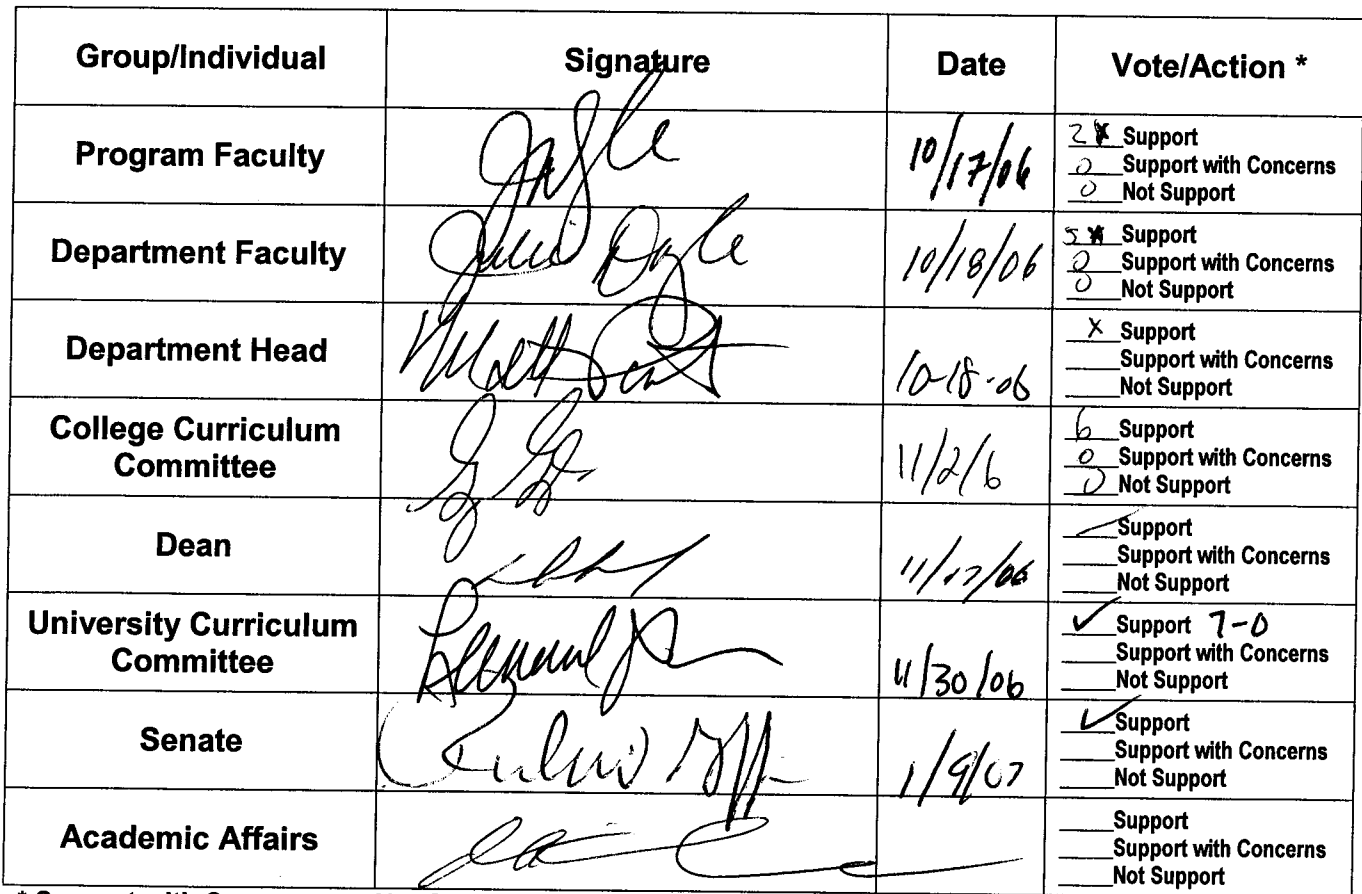 Group/Individual Signature Date Vote/Action *
Program Faculty 10/17/06
2 Support
0 Support with Concerns
0 Not Support
Department Faculty Julie Doyle 10/18/06
5 Support
0 Support with Concerns
0 Not Support
Department Head 10-18-06
X Support
Support with Concerns
Not Support
College Curriculum
Committee 11/2/6
6 Support
0 Support with Concerns
0 Not Support
Dean 11/17/06
Support
Support with Concerns
Not Support
University Curriculum
Committee 11/30/06
✓ Support 7-0
Support with Concerns
Not Support
Senate 1/9/07
✓ Support
Support with Concerns
Not Support
Academic Affairs
Support
Support with Concerns
Not Support